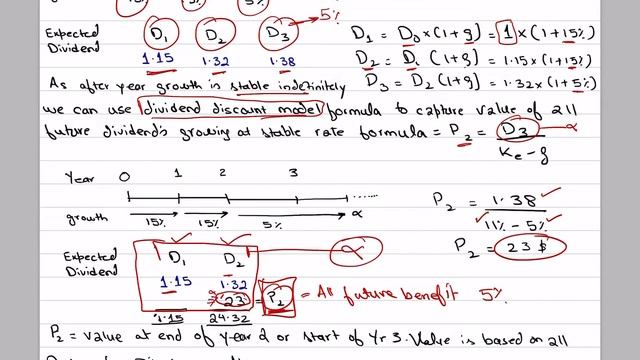 15% 15% 5%
Expected Dividend D₁ D₂ D₃ → 5%
1.15 1.32 1.38
D₁ = D₀ × (1+g) = 1 × (1+15%)
D₂ = D₁ (1+g) = 1.15 × (1+15%)
D₃ = D₂ (1+g) = 1.32 × (1+5%)
As after year growth is stable indefinitely
we can use dividend discount model formula to capture value of all
future dividend's growing at stable rate formula = P₂ = D₃ / Ke - g α
Year 0 1 2 3
growth 15% 15% 5% α
P₂ = 1.38 / 11% - 5%
P₂ = 23 $
Expected Dividend D₁ D₂ α
1.15 1.32
23 = P₂ = All future benefit 5%
1.15 24.32
P₂ = value at end of year 2 or start of Yr 3. Value is based on all